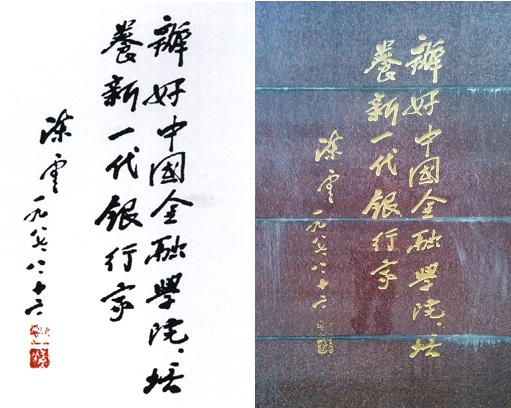 辦好中國金融學院、培
養新一代銀行家
陈雲
一九八七、八、十六
辦好中國金融學院、培
養新一代銀行家
陈雲
一九八七、八、十六